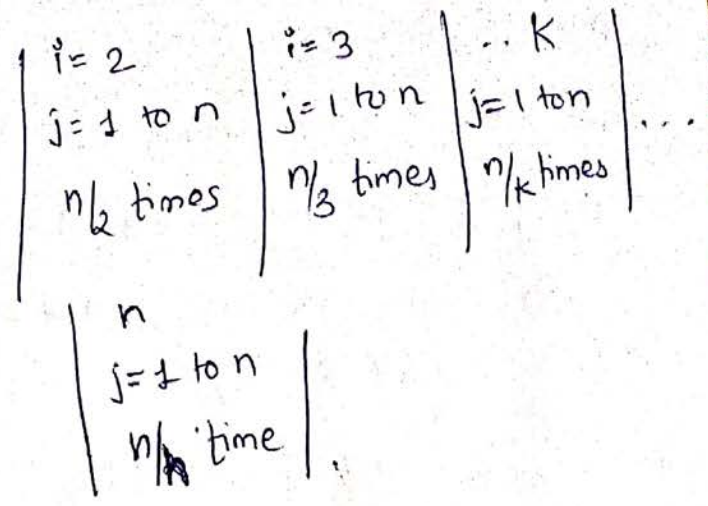 i= 2
j= 1 to n
n/2 times
i= 3
j= 1 to n
n/3 times
.. K
j= 1 to n
n/k times
...
n
j= 1 to n
n/n time
.